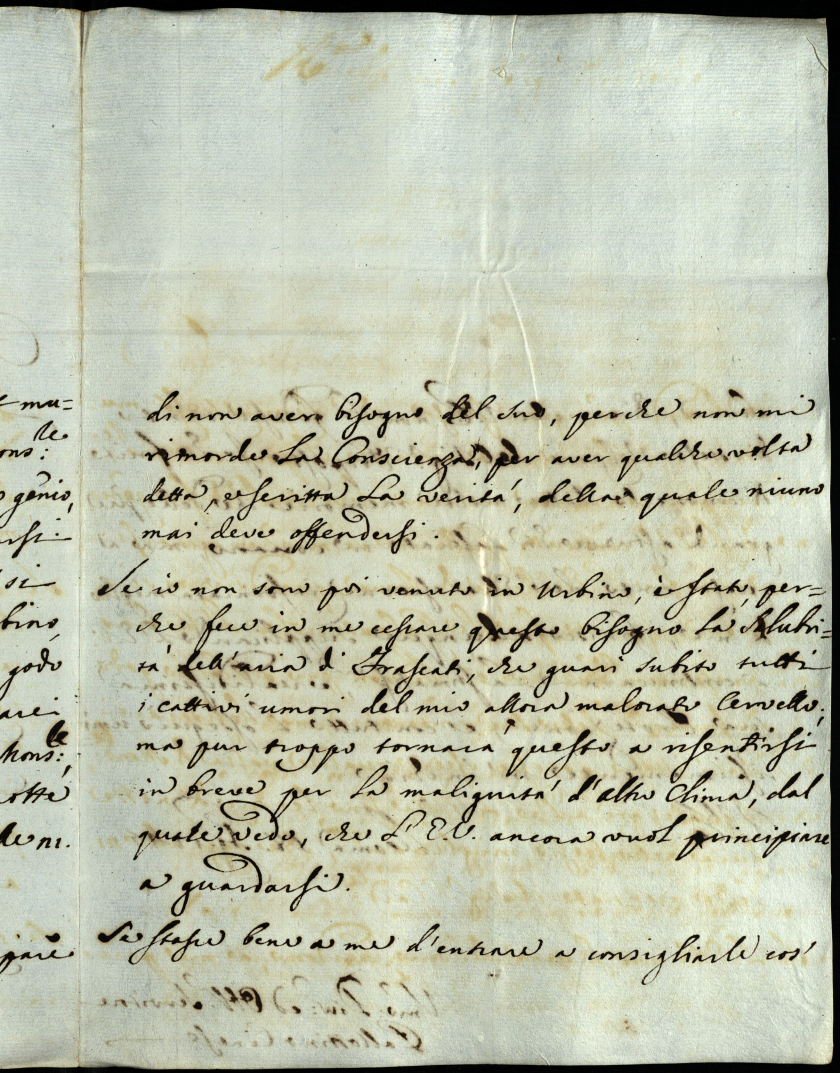 di non aver bisogno del suo, perche non mi
rimorde La Conscienza, per aver qualche volta
detta, e scritta La verità, della quale niuno
mai deve offendersi.
Se io non sono poi venuto in Urbino, è stato, per=
che fece in me cessare questo bisogno La salubri=
tà dell'aria di Frascati, che guarì subito tutti
i cattivi umori del mio allora malorato Cervello;
ma pur troppo tornarà questo a risentirsi
in breve per La malignità d'altro Clima, dal
quale vedo, che L'E.V. ancora vuol principiare
a guardarsi.
Se stasse bene a me d'entrare a consigliarle cos'
mu=
le
ons:
genio,
arsi
si
bino,
godo
arei
Mons:le,
otte